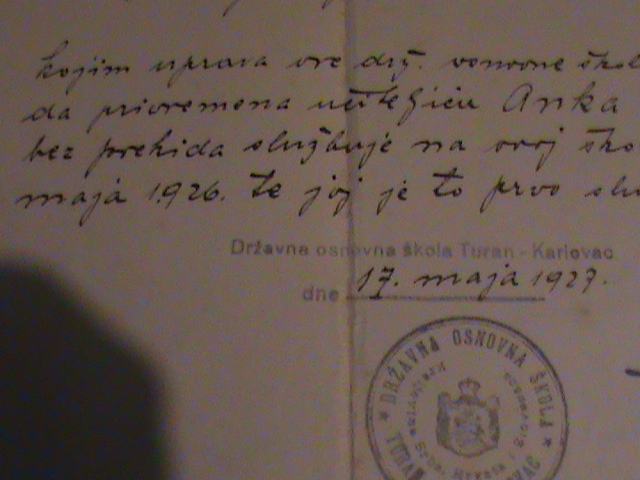 kojim uprava ove drž. osnovne škol
da privremena učiteljica Anka
bez prekida službuje na ovoj ško
maja 1926. te joj je to prvo slu
Državna osnovna škola Turan-Karlovac
dne 17. maja 1927.
* DRŽAVNA OSNOVNA ŠKOLA *
Kraljevina Srba, Hrvata i Slovenaca